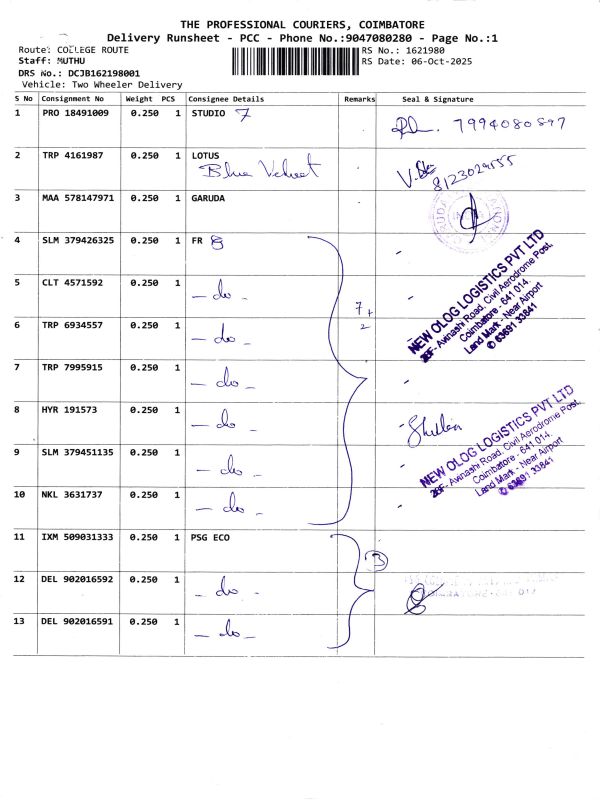 THE PROFESSIONAL COURIERS, COIMBATORE
Delivery Runsheet - PCC - Phone No.:9047080280 - Page No.:1
Route: COLLEGE ROUTE RS No.: 1621980
Staff: MUTHU RS Date: 06-Oct-2025
DRS No.: DCJB162198001
Vehicle: Two Wheeler Delivery
S No Consignment No Weight PCS Consignee Details Remarks Seal & Signature
1 PRO 18491009 0.250 1 STUDIO 7 7994080897
2 TRP 4161987 0.250 1 LOTUS
Blue Velvet 8123029555
3 MAA 578147971 0.250 1 GARUDA
4 SLM 379426325 0.250 1 FR 8
5 CLT 4571592 0.250 1 - do -
6 TRP 6934557 0.250 1 - do -
7 TRP 7995915 0.250 1 - do -
8 HYR 191573 0.250 1 - do -
9 SLM 379451135 0.250 1 - do -
10 NKL 3631737 0.250 1 - do -
11 IXM 509031333 0.250 1 PSG ECO 3
12 DEL 902016592 0.250 1 - do -
13 DEL 902016591 0.250 1 - do -
NEW OLOG LOGISTICS PVT LTD
Avinashi Road, Civil Aerodrome Post,
Coimbatore - 641 014.
Land Mark - Near Airport
63691 33841
NEW OLOG LOGISTICS PVT LTD
Avinashi Road, Civil Aerodrome Post,
Coimbatore - 641 014.
Land Mark - Near Airport
63691 33841